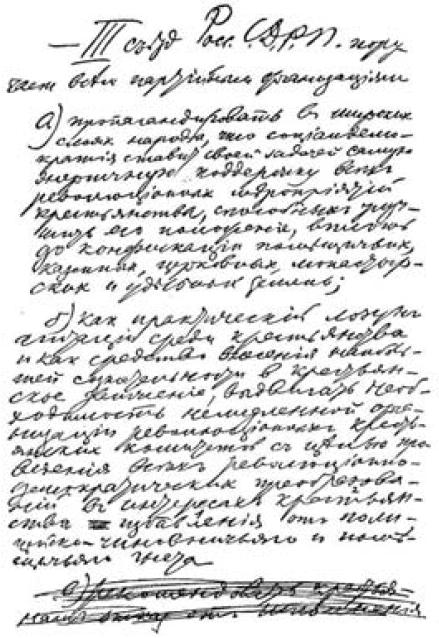 — III съѣзд Росс. С.Д.Р.П. пору
чает всѣм партійным организаціям
а) пропагандировать в широких
слоях народа, что соціалдемо-
кратія ставит своей задачей самую
энергичную поддержку всѣх
революціонных мѣропріятій
крестьянства, способных улуч-
шить его положеніе, вплоть
до конфискаціи помѣщичьих,
казенных, церковных, монастыр-
ских и удѣльных земель;
б) как практическій лозунг
агитаціи среди крестьянства
и как средство внесенія наиболь-
шей сознательности в крестьян-
ское движеніе, выдвигать необ-
ходимость немедленной орга-
низаціи революціонных кресть-
янских комитетов съ цѣлью про
веденія всѣх революціонно-
демократических преобразова-
ній въ интересах крестьян-
ства и избавленія отъ поли-
цейско-чиновничьяго и помѣ-
щичьяго гнета
в) рекомендовать кресть-